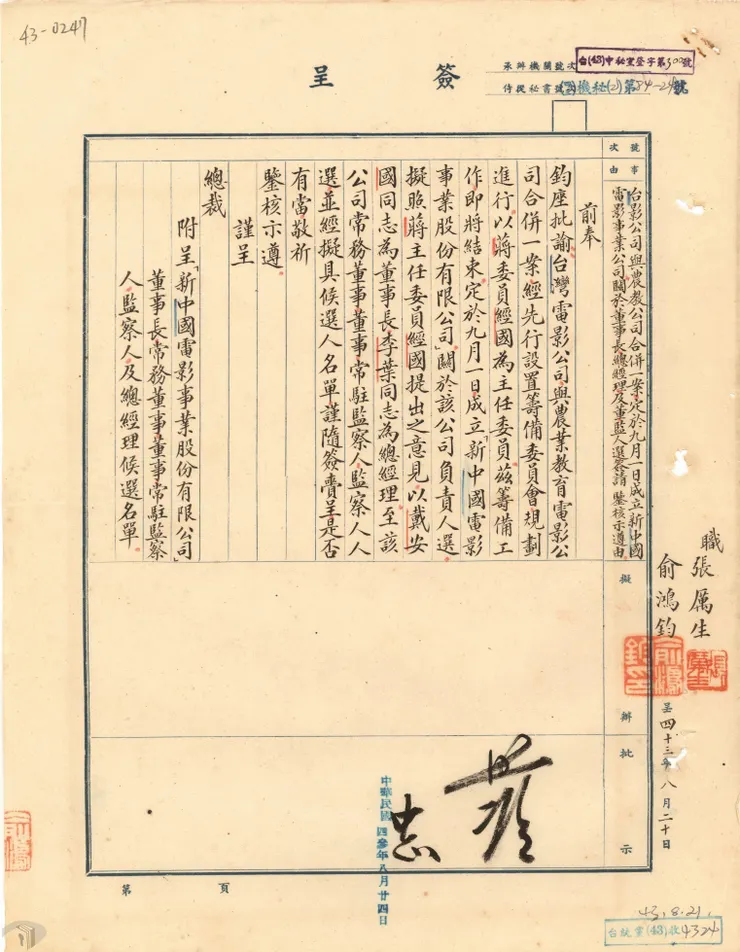 43-0247
簽呈
承辦機關號次
台(43)中秘室登字第300號
侍從秘書號次
(43)機秘(乙)第84-24號
號次
事由
台影公司與農教公司合併一案定於九月一日成立新中國
電影事業公司關於董事長總經理及董監人選簽請 鑒核示遵由
前奉
鈞座批諭台灣電影公司與農業教育電影公
司合併一案經先行設置籌備委員會規劃
進行以蔣委員經國為主任委員茲籌備工
作即將結束定於九月一日成立「新中國電影
事業股份有限公司」關於該公司負責人選
擬照蔣主任委員經國提出之意見以戴安
國同志為董事長李葉同志為總經理至該
公司常務董事董事常駐監察人監察人人
選並經擬具候選人名單謹隨簽賫呈是否
有當敬祈
鑒核示遵
謹呈
總裁
附呈「新中國電影事業股份有限公司」
董事長常務董事董事常駐監察
人監察人及總經理候選名單
職 張厲生
俞鴻鈞
呈 四十三年八月二十日
擬辦
批示
中華民國四參年八月廿四日
第 頁
43.8.21.
台統業(43)收4324